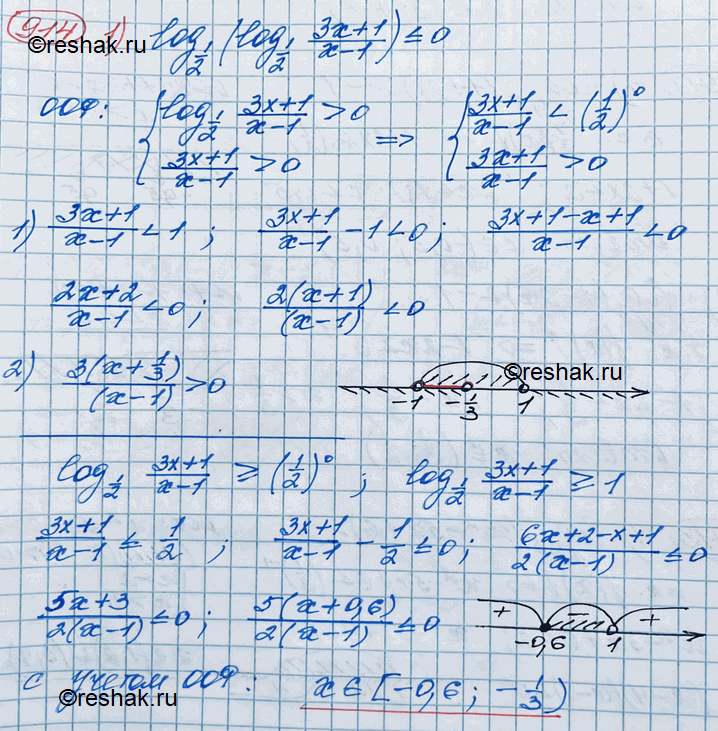 914 1) log_{1/2} (log_{1/2} (3x+1)/(x-1)) ≤ 0
©reshak.ru
ООФ: { log_{1/2} (3x+1)/(x-1) > 0 => { (3x+1)/(x-1) < (1/2)^0
(3x+1)/(x-1) > 0 (3x+1)/(x-1) > 0
©reshak.ru
1) (3x+1)/(x-1) < 1 ; (3x+1)/(x-1) - 1 < 0 ; (3x+1-x+1)/(x-1) < 0
(2x+2)/(x-1) < 0 ; 2(x+1)/(x-1) < 0
2) 3(x+1/3)/(x-1) > 0
©reshak.ru
-1 -1/3 1
©reshak.ru
log_{1/2} (3x+1)/(x-1) ≥ (1/2)^0 ; log_{1/2} (3x+1)/(x-1) ≥ 1
(3x+1)/(x-1) ≤ 1/2 ; (3x+1)/(x-1) - 1/2 ≤ 0 ; (6x+2-x+1)/(2(x-1)) ≤ 0
(5x+3)/(2(x-1)) ≤ 0 ; 5(x+0,6)/(2(x-1)) ≤ 0
+ - +
-0,6 1
с учетом ООФ: x ∈ [-0,6 ; -1/3)
©reshak.ru
©reshak.ru